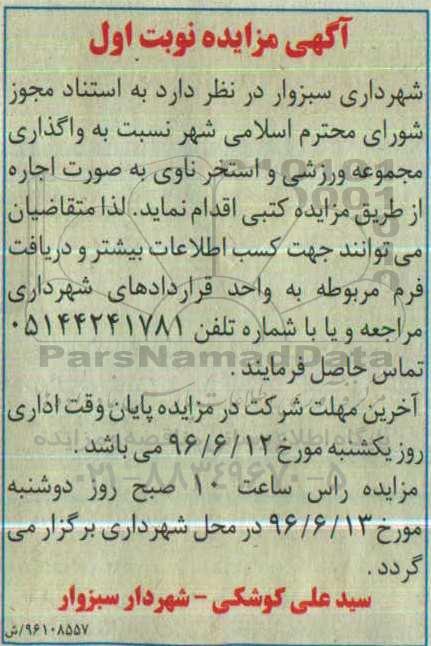 آگهی مزایده نوبت اول
شهرداری سبزوار در نظر دارد به استناد مجوز
شورای محترم اسلامی شهر نسبت به واگذاری
مجموعه ورزشی و استخر ناوی به صورت اجاره
از طریق مزایده کتبی اقدام نماید. لذا متقاضیان
می توانند جهت کسب اطلاعات بیشتر و دریافت
فرم مربوطه به واحد قراردادهای شهرداری
مراجعه و یا با شماره تلفن ۰۵۱۴۴۲۴۱۷۸۱
ParsNamadData
تماس حاصل فرمایند .
آخرین مهلت شرکت در مزایده پایان وقت اداری
روز یکشنبه مورخ ۹۶/۶/۱۲ می باشد .
۰۲۱-۸۸۳۴۹۶۷۰-۵
مزایده راس ساعت ۱۰ صبح روز دوشنبه
مورخ ۹۶/۶/۱۳ در محل شهرداری برگزار می
گردد .
سید علی کوشکی - شهردار سبزوار
۹۶۱۰۸۵۵۷/ش